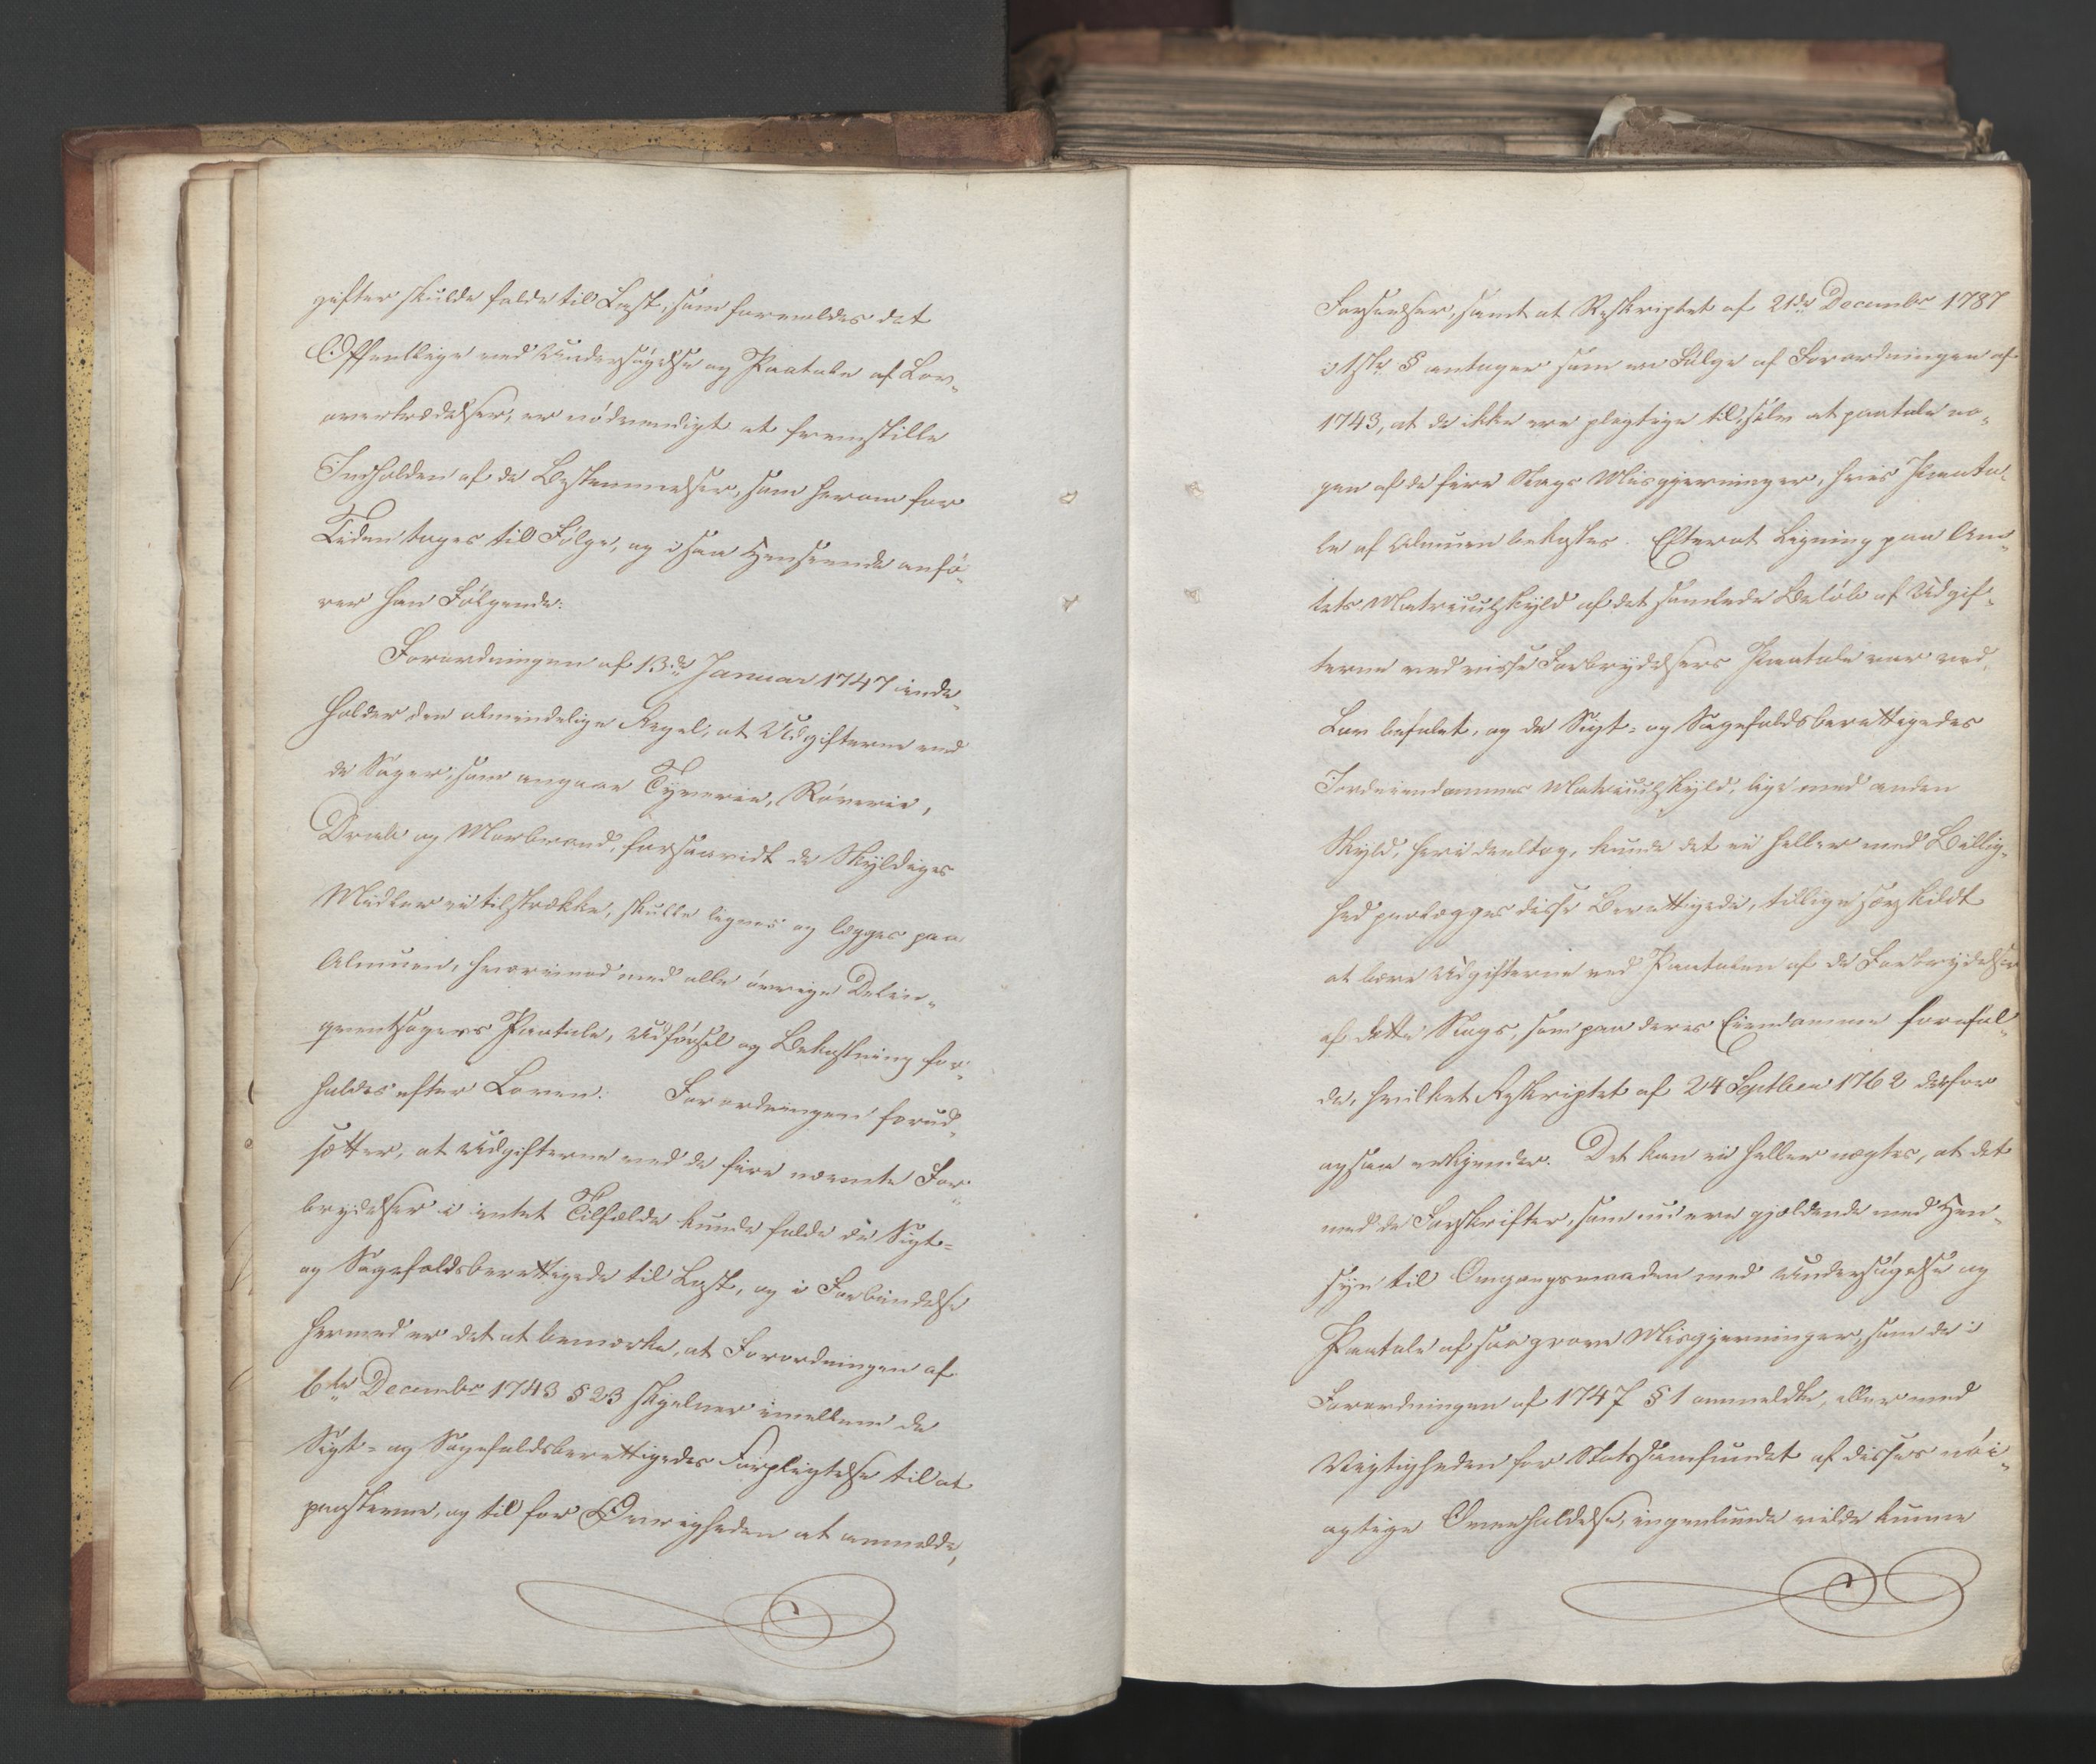 gifter skulde falde til Last, som foranledes det
Offentlige ved Undersøgelse og Paatale af Lov-
overtrædelser, er nödvendigt at fremstille
Indholden af de Bestemmelser, som herom for
Tiden tages til Fölge, og i saa Henseende anfö-
rer han Fölgende:
Forordningen af 13de Januar 1747 inde-
holder den almindelige Regel, at Udgifterne ved
de Sager, som angaae Tyverie, Röverie,
Drab og Mordbrand, forsaavidt de Skyldiges
Midler ei tilstrække, skulle lignes og lægges paa
Almuen, hvorimod med alle övrige Delin-
qventsagers Paatale, Udförsel og Bekostning for-
holdes efter Loven. Forordningen forud-
sætter, at Udgifterne ved de fire nævnte For-
brydelser i intet Tilfælde kunde falde de Sigt-
og Sagefaldsberettigede til Last, og i Forbindelse
hermed er det at bemærke, at Forordningen af
6te Decembr 1743 § 23 skjelner imellem de
Sigt- og Sagefaldsberettigedes Forpligtelse til at
paagribe, og til for Övrigheden at anmelde,
Forseelser, samt at Reskriptet af 21de Decembr 1787
i 1ste § antager som en Fölge af Forordningen af
1743, at de ikke ere pligtige til selv at paatale no-
gen af de fire Slags Misgjerninger, hvis Paata-
le af Almuen bekostes. Efterat Ligning paa Am-
tets Matriculskyld af det samlede Belöb af Udgif-
terne ved visse Forbrydelsers Paatale var ved
Lov befalet, og de Sigt- og Sagefaldsberettigedes
Jordeiendommes Matriculskyld, lige med anden
Skyld, heri deeltog, kunde det ei heller med Billig-
hed paalægges disse Berettigede, tillige særskildt
at bære Udgifterne ved Paatalen af de Forbrydelser
af dette Slags, som paa deres Eiendomme forefal-
de, hvilket Reskriptet af 24 Septber 1762 derfor
ogsaa erkjender. Det kan ei heller nægtes, at det
med de Forskrifter, som nu ere gjældende med Hen-
syn til Omgangsmaaden med Undersøgelse og
Paatale af saa grove Misgjerninger, som de i
Forordningen af 1747 § 1 ommeldte, eller med
Vigtigheden for Statssamfundet af disses nöi-
agtige Overholdelse, ingenlunde vilde kunne